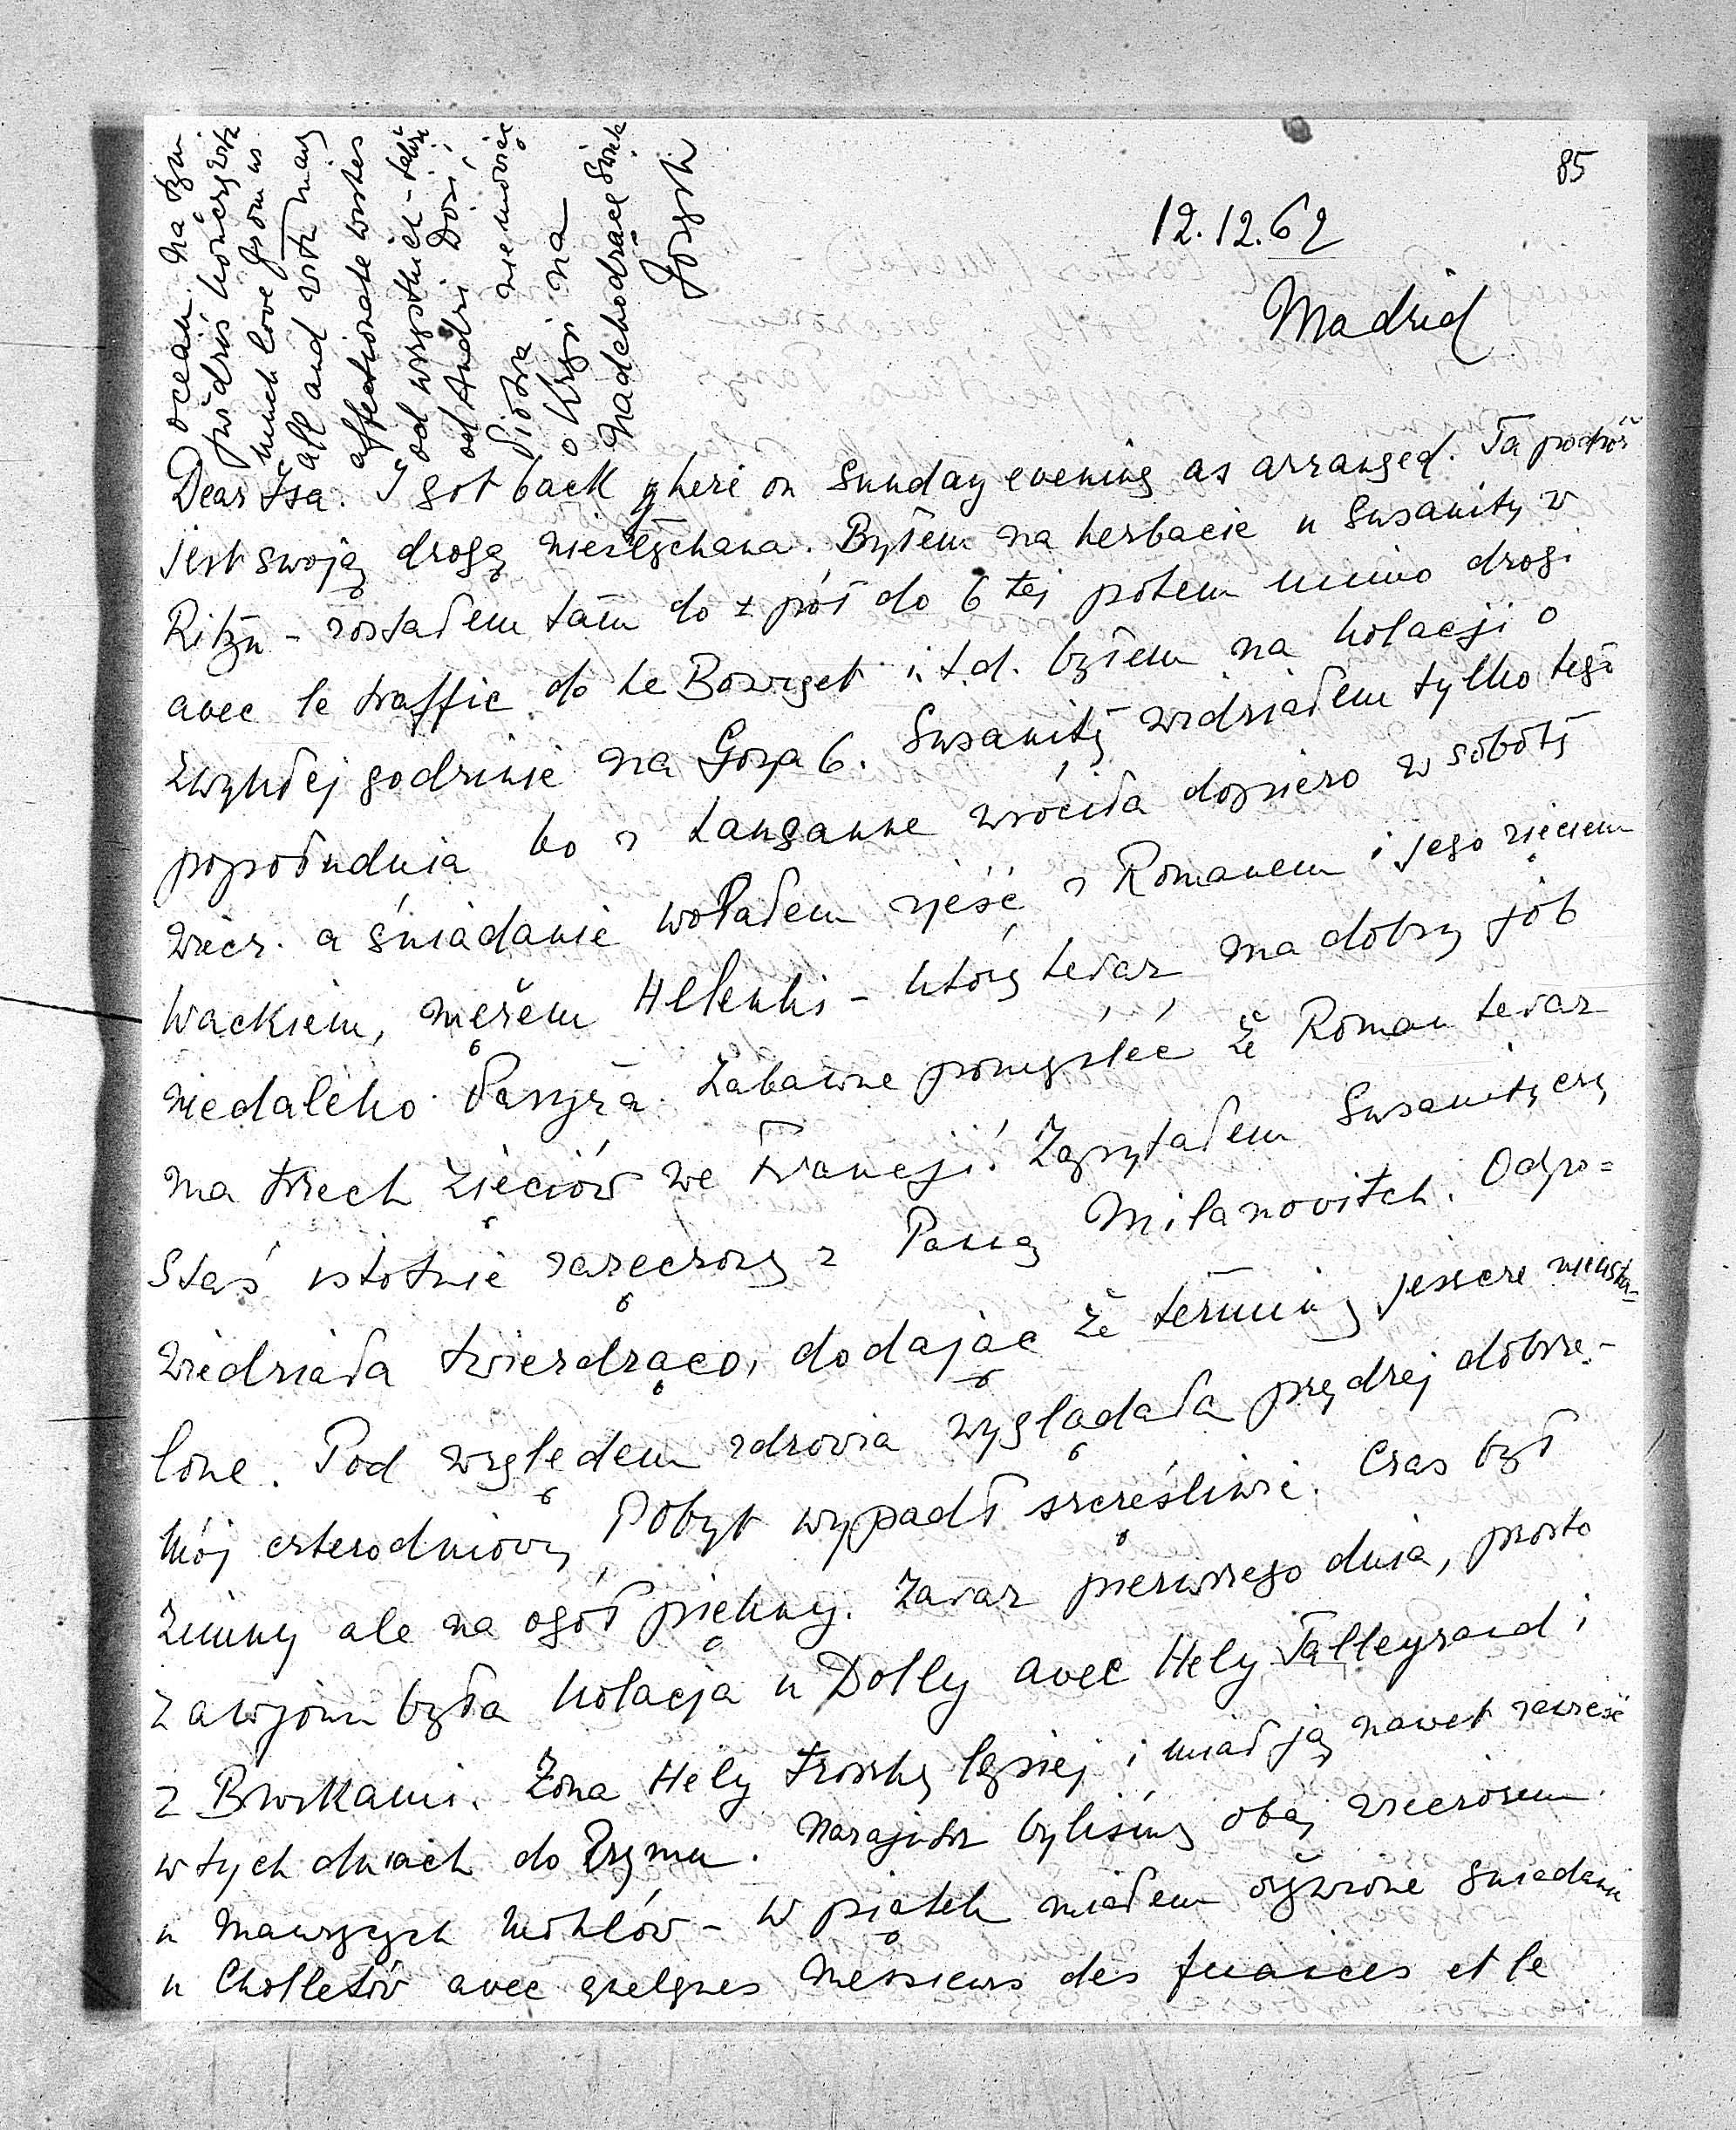 85
12.12.62
Madrid
Dear Isa. I got back here on Sunday evening as arranged. Ta podróż
jest swoją drogą niesłychana. Byłem na herbacie u Susanity w
Ritzu – zostałem tam do ½ pół do 6 tej potem mimo drogi
avec le traffic do Le Bourget i.t.d. byłem na kolacji o
zwykłej godzinie na Goya 6. Susanitę widziałem tylko tego
popołudnia bo z Lausanne wróciła dopiero w sobotę
wiecz. a śniadanie wolałem zjeść z Romanem i jego zięciem
Wackiem, mężem Helenki – który teraz ma dobry job
niedaleko Paryża. Zabawne pomyśleć że Roman teraz
ma trzech zięciów we Francji! Zapytałem Susanitę czy
Staś istotnie zaręczony z Panną Milanovitch. Odpo=
wiedziała twierdząco, dodając że terminy jeszcze nieusta=
lone. Pod względem zdrowia wyglądała prędzej dobrze.–
Mój czterodniowy Pobyt wypadł szczęśliwie. Czas był
zimny ale na ogół piękny. Zaraz pierwszego dnia, prosto
z avionu była kolacja u Dolly avec Hely Talleyrand i
z Buckami. Żona Hely troszkę lepiej i miał ją nawet zawieść
w tych dniach do Rzymu. Nazajutrz byliśmy obaj wieczorem
u – w piątek miałem ożywione śniadanie
u Cholletów avec quelques messieurs des finances et le
ocean. Na tym
też dziś kończę with
much love from us
all and with many
affectionate wishes
od wszystkich – także
od Andzi Dosi
Piotra nie mówiąc
o Krzysi na
nadchodzące Święta
Józysh